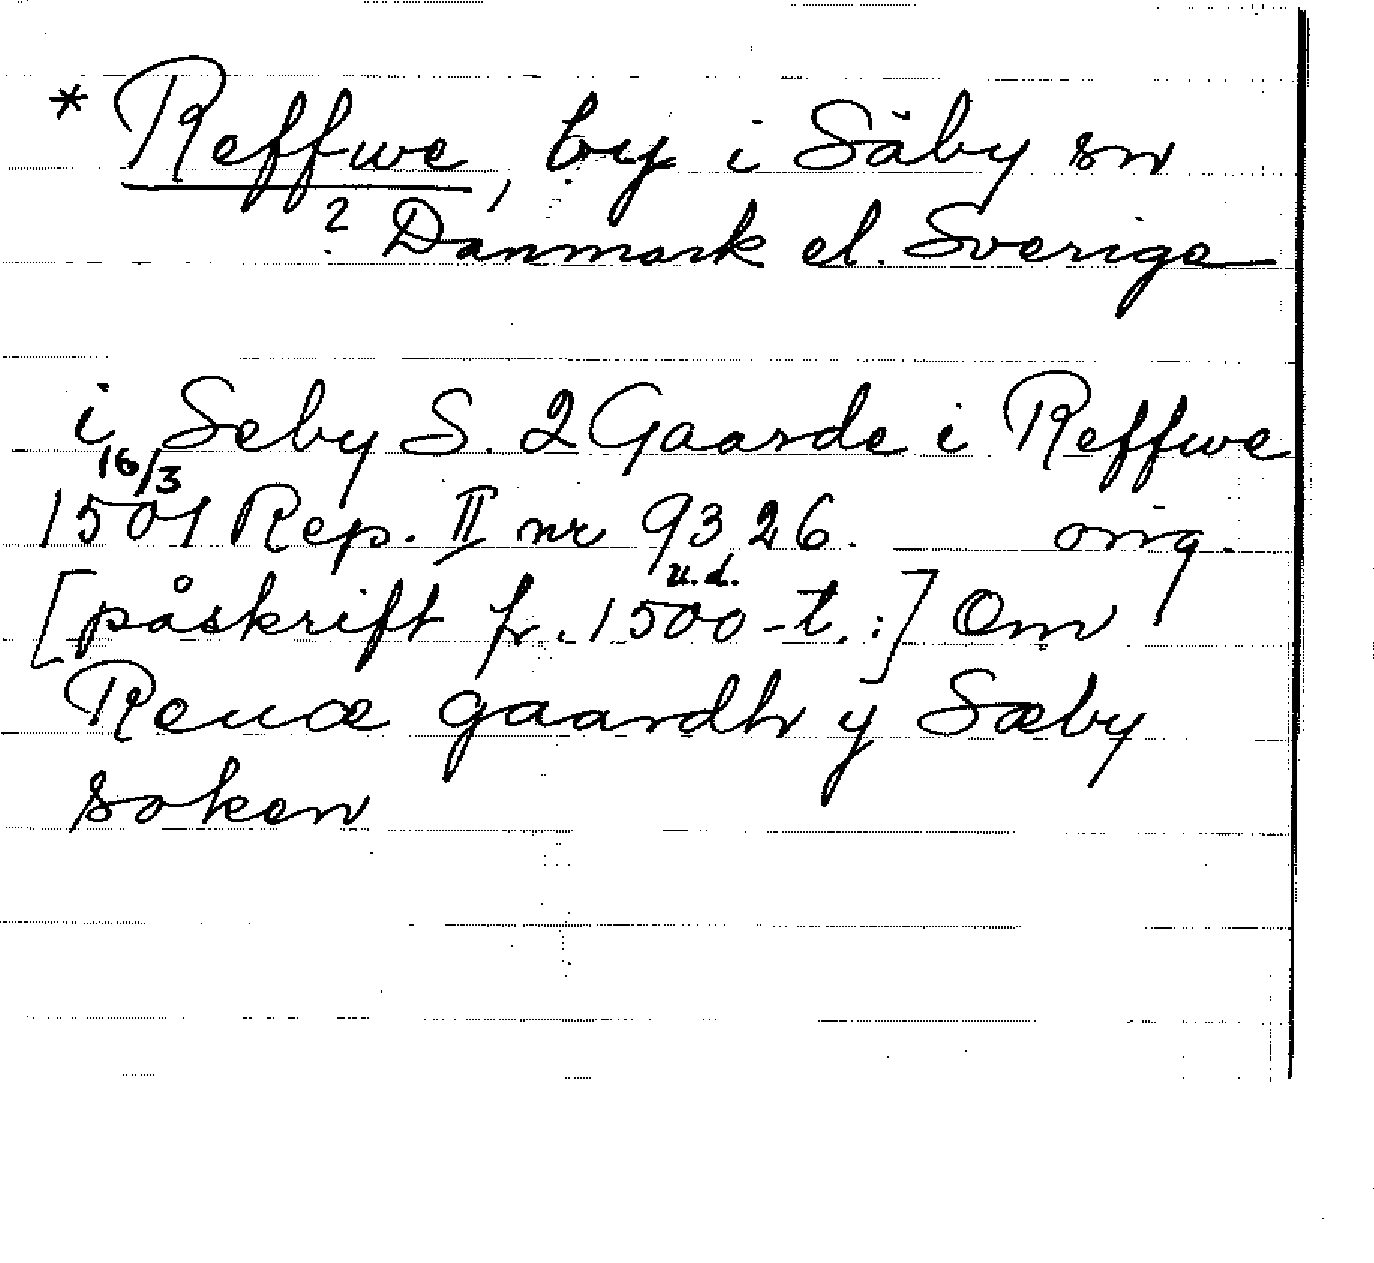 * Reffwe, by i Säby sn
? Danmark el. Sverige
i Seby S. 2 Gaarde i Reffwe
16/3
1501 Rep. II nr 9326. orig.
u.d.
[påskrift fr. 1500-t.:] Om
Reuæ gaardh y Sæby
soken